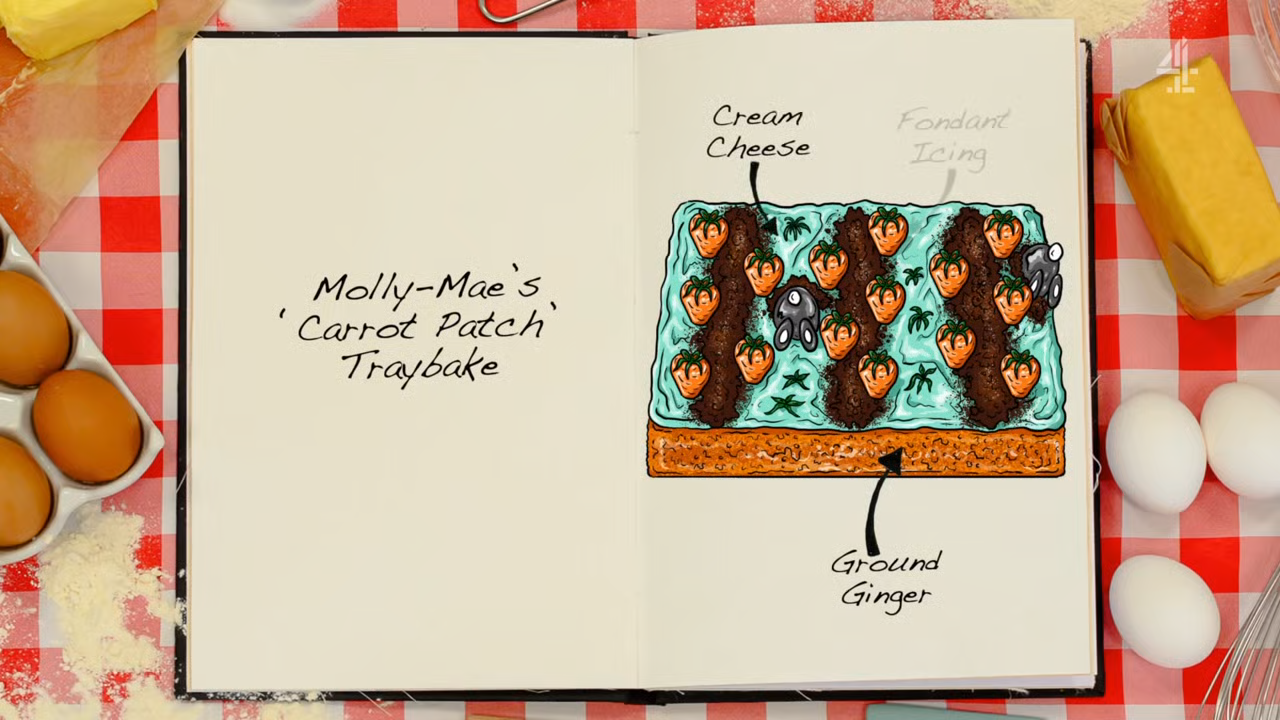 Molly-Mae's
'Carrot Patch'
Traybake
Cream
Cheese
Fondant
Icing
Ground
Ginger
4